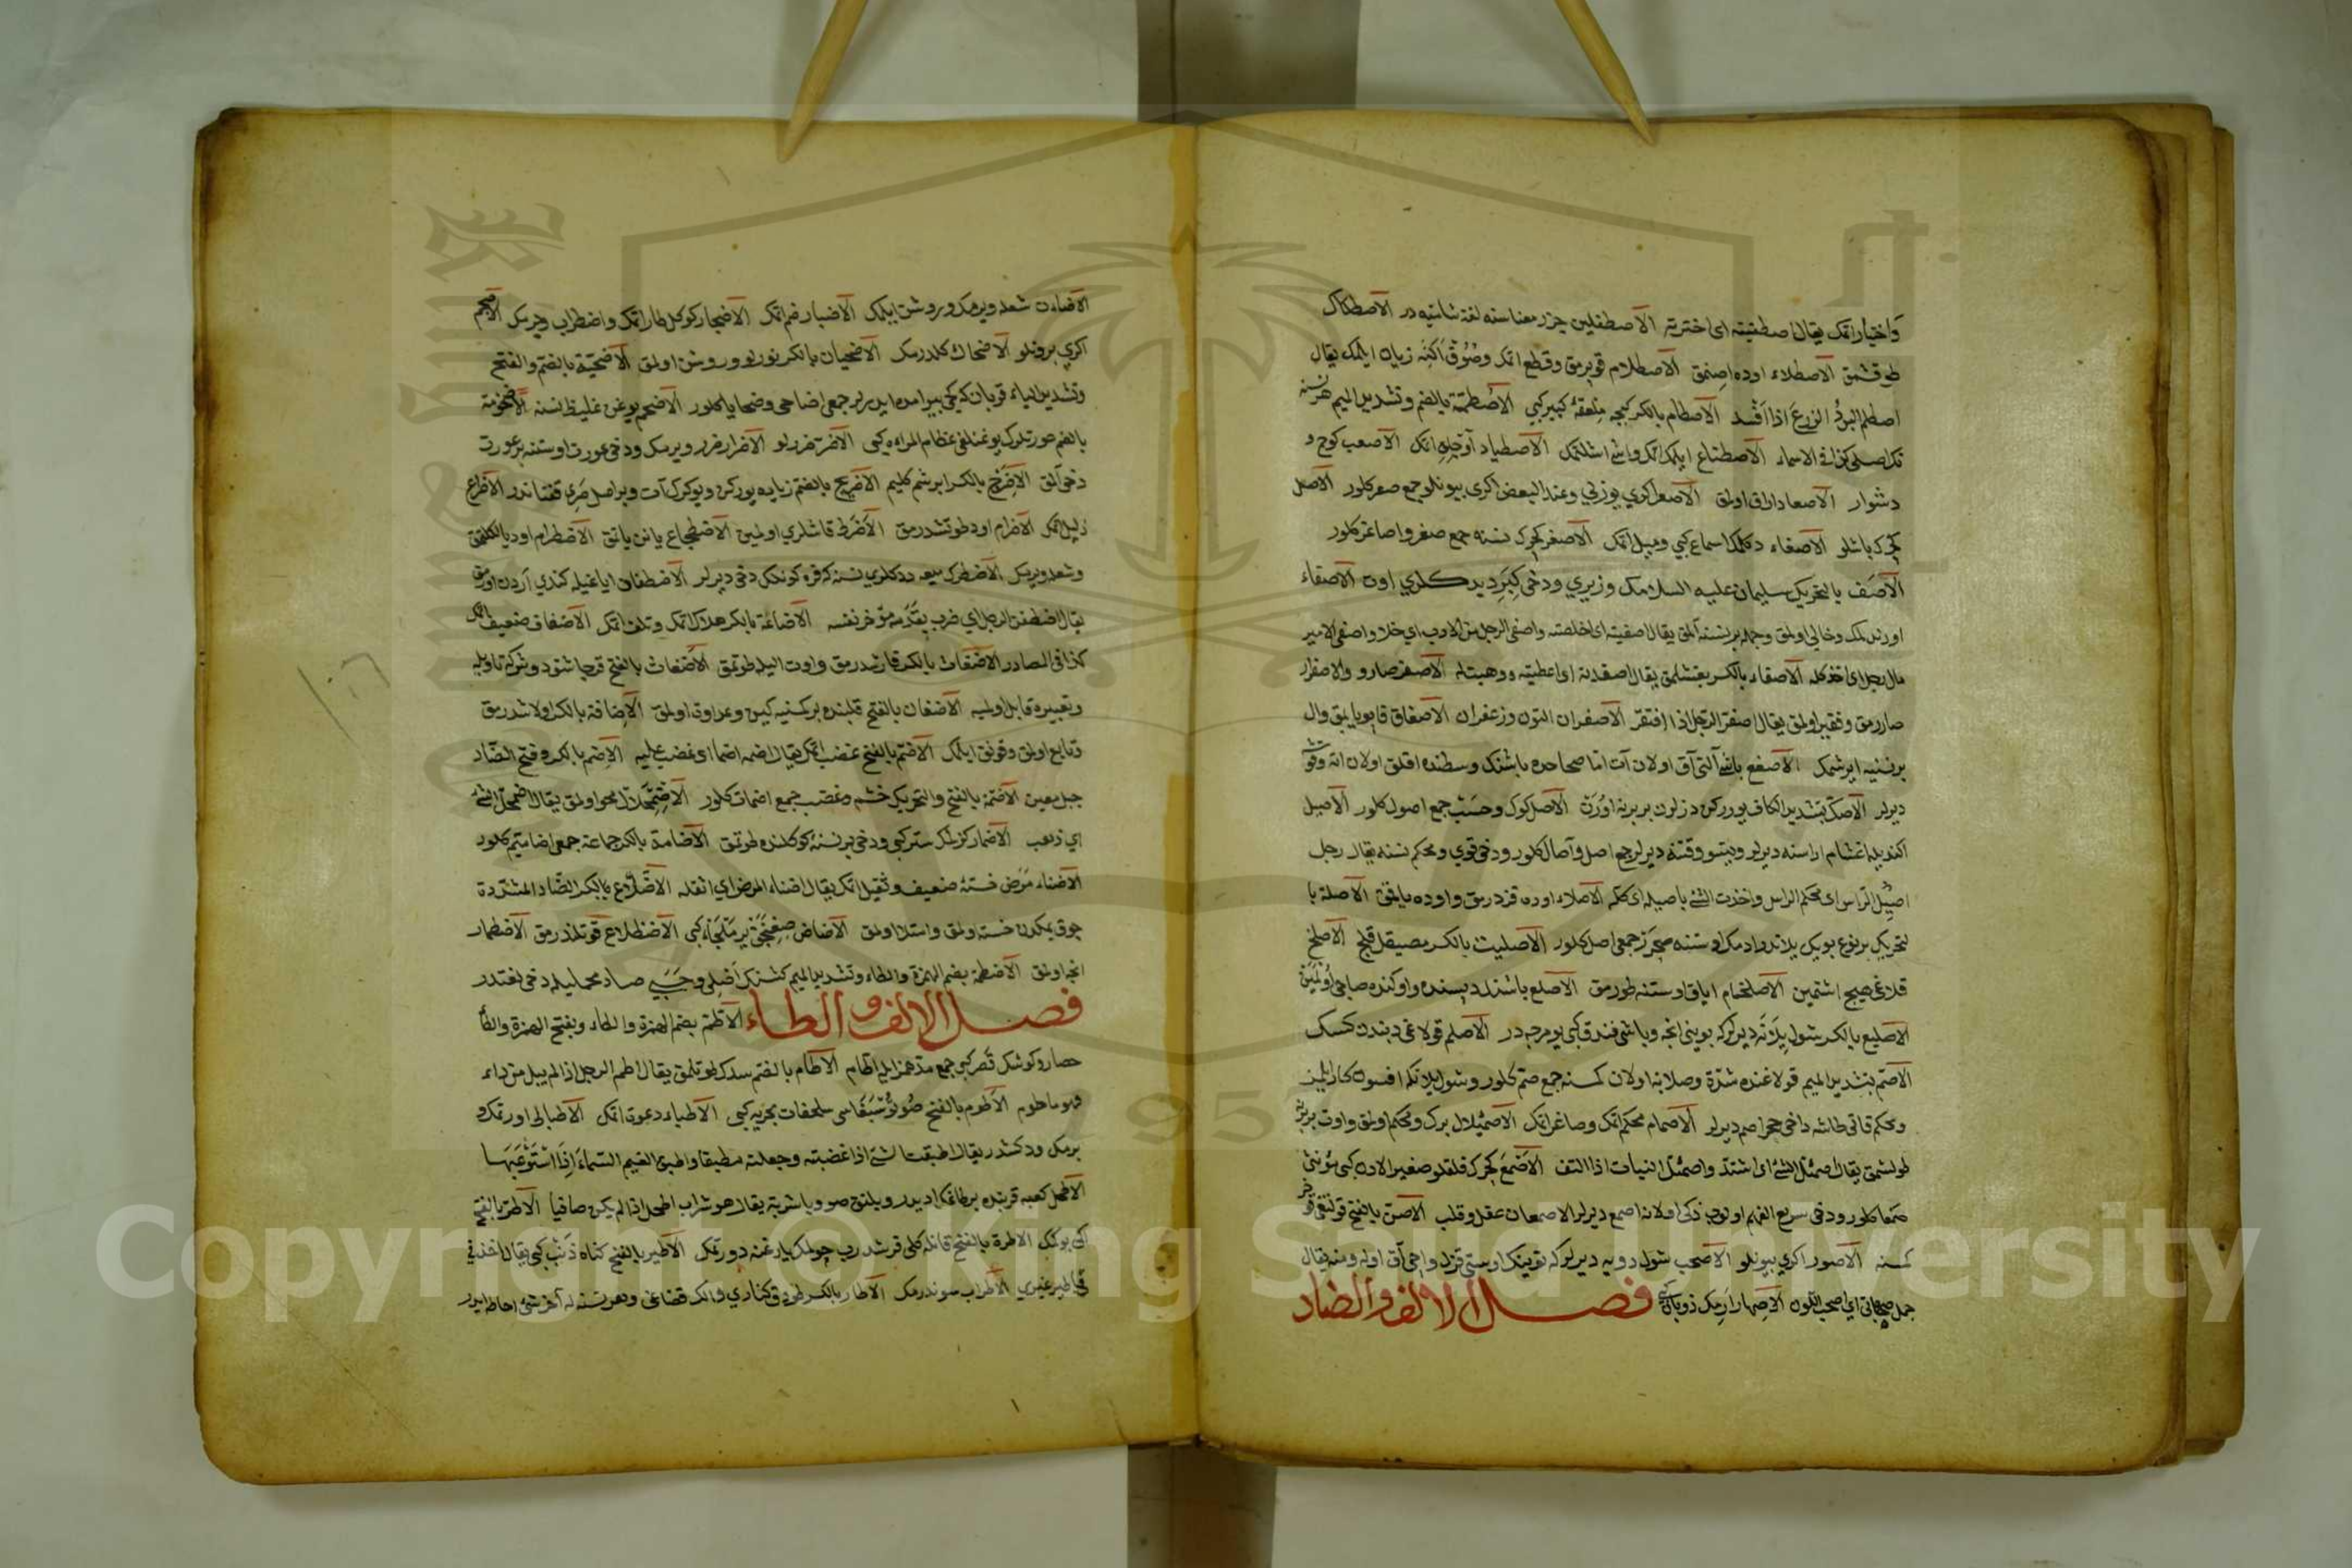 واختيار اتمك يقال اصطفيته اى اخترته الاصطفلين جزر معناسنه لغة شاميه در الاصطكاك
طوقشمق الاصطلاء اوده اصنمق الاصطلام قوپرمق وقطع اتمك وصوق اكنه زيان ايلمك يقال
اصطلم البرد الزرع اذا افسد الاصطام بالكسر كبجه ملعقة كبير كبى الاصطمة بالضم وتشديد الميم هر نسنه
نك اصلى كذا فى الاسماء الاصطناع ايلك اتمك واش اشلتمك الاصطياد آو اتمك الاصعب كوج و
دشوار الاصعاد اراق اولمق الاصعر اكرى يوزلى وعند البعض اكرى بيونلو جمع صعر كلور الاصعل
كجرك باشلو الاصغاء دكلمك اسماع كبى وميل اتمك الاصغر كجرك نسنه جمع صغر واصاغر كلور
الآصف بالتحريك سليمان عليه السلامك وزيرى ودخى كبر ديدكلرى اوت الاصفاء
اورندلمك وخالى اولمق وجمله بر نسنه آلمق يقال اصفيته اى اخلصته واصفى الرجل من الادب اى خلا واصفى الامير
مال رجل اى اخذ كله الاصفاد بالكسر بغشلمق يقال اصفدته اى اعطيته ووهبت له الاصفر صارو والاصفرار
صارارمق وفقير اولمق يقال اصفر الرجل اذا افتقر الاصفران التون وزعفران الاصفاق قاپو ياپمق وال
بر نسنيه ايرشمك الاصقع باشى آلنى آق اولان آت اما صحاحده باشنك وسطنده اقلق اولان اته وقوشه
ديرلر الاصك بتشديد الكاف يورركن دزلرن بربرينه اورن الاصل كوك وحسب جمع اصول كلور الاصيل
اكنديله اخشام اراسنه ديرلر ويتسو وقتنه ديرلر جمع اصل وآصال كلور ودخى قوى ومحكم نسنه يقال رجل
اصيل الرأس اى محكم الراس واخذت الشئ باصيله اى كله الاصلاء اوده قزدرمق واوده ياقمق الاصلة با
لتحريك بر نوع بويك يلاندر ادمك اوستنه صچرر جمعى اصل كلور الاصليت بالكسر مصيقل قلج الاصلخ
قلاغى هيج اشتمين الاصلخمام اياق اوستنه طورمق الاصلع باشنك دپسنده واوكنده صاجى اولمين
الاصليع بالكسر شول يلانه ديرلر كه بوينى انجه وباشى فندق كبى يومرجه در الاصلم قولاغى دبندن كسك
الاصم بتشديد الميم قولاغنده شدة وصلابة اولان كمسنه جمع صم كلور وشول يلانكه افسون كار ايلمز
ومحكم قاتى طاشه داخى حجر اصم ديرلر الاصمام محكم اتمك وصاغر اتمك الاصميلال برك ومحكم اولمق واوت بربرينه
طولشمق يقال اصمئل الشئ اى اشتد واصمئل النبات اذا التف الاصمع كجرك قلقلو صغير الاذن كبى مؤنثى
صمعا كلور ودخى سريع الفهم اولوب ذكى اولانه اصمع ديرلر الاصمعان عقل وقلب الاصن بالفتح قولتغى قوخر
كمسنه الاصور اكرى بيونلو الاصهب شول دويه ديرلر كه تويينك اوستى قزل واچى آق اوله ومنه يقال
جمل صهابى اى اصهب اللون الاصهار ارمك ذوبان كبى فصل الالف والضاد
الاضاءت شعله ويرمك وروشن ايلمك الاضبار فرم اتمك الاضجار كوكل طار اتمك واضطراب ويرمك الاضجم
اكرى برونلو الاضحاك كلدرمك الاضحيان بالكسر نورلو وروشن اولمق الاضحية بالضم والفتح
وتشديد الياء قربان كه كى بيرامده ايدرلر جمعى اضاحى وضحايا كلور الاضخم يوغن غليظ نسنه الاضخومة
بالضم عورتلرك يوغنلغى عظام المراءه كبى الاضر ضررلو الاضرار ضرر ويرمك ودخى عورت اوستنه بر عورت
دخى آلمق الاضريج بالكسر ابرشم كليم الاضريج بالفتح زياده يوركن ويوكرك آت وبر اصل صرى قفتاندر الاضراع
ذليل اتمك الاضرام اود طوتشدرمق الاضرط قاشلرى اولمين الاضطجاع يانن ياتمق الاضطرام اود يالكلنمق
وشعله ويرمك الاضطرك ميعه ددكلرى نسنه كه قره كونلك دخى ديرلر الاضطفان اياغيله كندى آردن اورمق
يقال اضطفن الرجل اى ضرب بقدمه مؤخر نفسه الاضاعة بالكسر هلاك اتمك وتلف اتمك الاضعاف ضعيف اتمك
كذا فى المصادر الاضغاث بالكسر قارشدرمق واوت اليله طوتمق الاضغاث بالفتح قرجاشق دوشركه تاويله
وتعبيره قابل اولميه الاضغان بالفتح قلبنده بر كمسنيه كين وعداوت اولمق الاضافة بالكسر اولاشدرمق
وتابع اولمق وقونق ايلمك الاضم بالفتح غضب اتمك يقال اضمه اضما اى غضب عليه الاضم بالكسر وفتح الضاد
جبل معين الاضمة بالفتح والتحريك خشم وغضب جمع اضمات كلور الاضمحلال محو اولمق يقال اضمحل الشئ
اى ذهب الاضمار كزلمك ستر كبى ودخى بر نسنه كوكلنده طوتمق الاضامة بالكسر جماعة جمعى اضاميم كلور
الاضناء مرض خسته ضعيف وثقيل اتمك يقال اضناه المرض اى اثقله الاضلاع بالكسر الضاد المشددة
جوق يمكدن خسته اولمق واستلا اولمق الاضاض صغنجق ير ملتجاء كبى الاضطلاع قوتلندرمق الاضطمار
انجه اولمق الاضطمة بضم الهمزة والطاء وتشديد الميم كشنك اصلى وحسبى صاد مهمليله دخى لغتدر
فصل الالف والطاء الاطمة بضم الهمزة والطاء وبفتح الهمزة والطا
حصار وكوشك قصر كبى جمع مد همز ايله آطام الاطام بالضم سدك طوتلمق يقال اطم الرجل اذا لم يبل من داء
فهو ماطوم الاطوم بالفتح صو لو سبغاسى سلحفات بحريه كبى الاطباء دعوت اتمك الاطبا الى اورتمك و
برمك ودكشدر يقال اطبقت الشئ اذا غضبته وجعلته مطبقا واطبق الغيم السماء اذا استوعبها
الاطحل كعبه قربنده بر طاغك اديدر وبلنق صو وباشربة يقال هو شراب اطحل اذا لم يكن صافيا الاطر بالفتح
اكى بوكمك الاطرة بالفتح قانله كلى قرشدرب چولمك يارغنه دورتمك الاطير بالفتح كناه ذنب كبى يقال اخذنى
فى اطير غيرى الاطراب سوندرمك الاطار بالكسر طودق كنارى والك قصناغى وهر نسنه نه آخر شئ احاطه ايدر